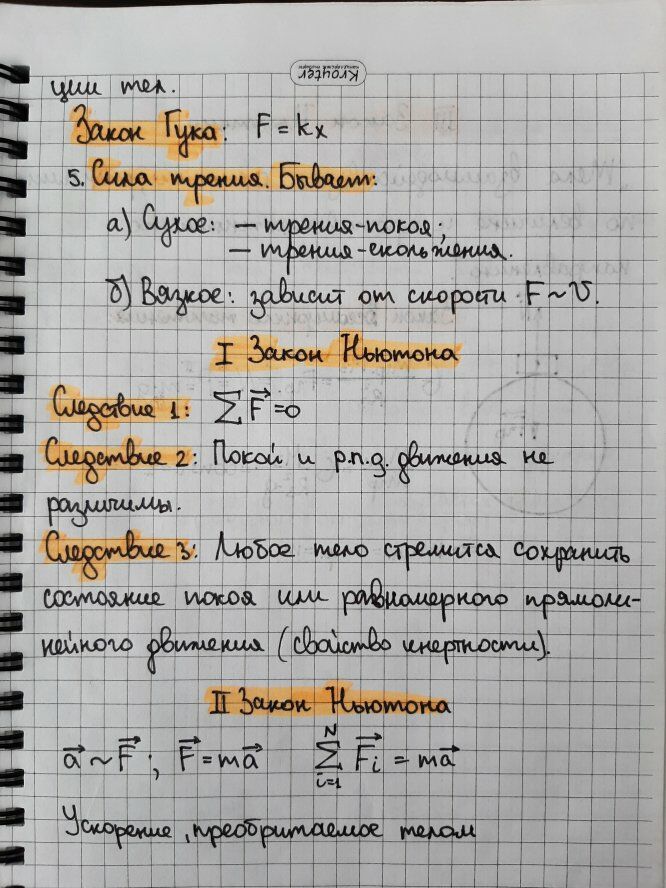 Kroyter
ции тел.
Закон Гука: F = kx
5. Сила трения. Бывает:
а) Сухое: — трения-покоя;
— трения-скольжения.
б) Вязкое: зависит от скорости F ~ υ.
I Закон Ньютона
Следствие 1: ∑ F⃗ = 0
Следствие 2: Покой и р.п.д. движения не
различимы.
Следствие 3: Любое тело стремится сохранить
состояние покоя или равномерного прямоли-
нейного движения (свойство инертности).
II Закон Ньютона
a⃗ ~ F⃗ ; F⃗ = ma⃗ ∑_{i=1}^{N} F⃗i = ma⃗
Ускорение, преобритаемое телом